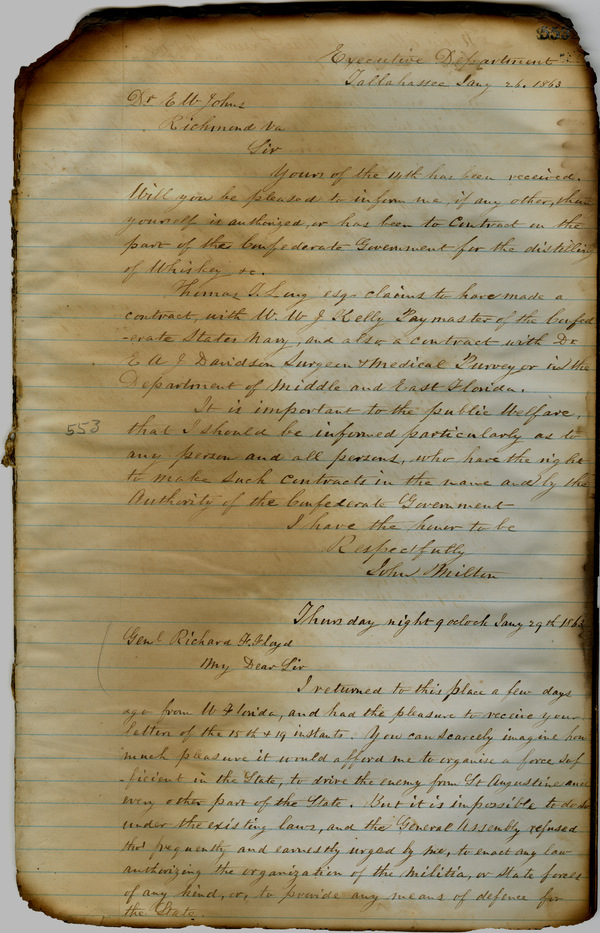 Executive Department
Tallahassee Jany 26. 1863
Dr E W Johns
Richmond Va
Sir
Yours of the 14th has been received.
Will you be pleased to inform me, if any other, than
yourself is authorized, or has been to Contract on the
part of the Confederate Government for the distilling
of Whiskey &c.
Thomas T. Long esqr claims to have made a
contract, with W. W J Kelly Paymaster of the Confed
-erate States Navy, and also a contract with Dr
E A J Davidson Surgeon & Medical Purveyor in the
Department of Middle and East Florida.
It is important to the public Welfare,
553
that I should be informed particularly as to
any person and all persons, who have the right
to make such contracts in the name and by the
Authority of the Confederate Government
I have the honor to be
Respectfully
John Milton
Thursday night 9 oclock Jany 29th 1863
Genl Richard F. Floyd
My Dear Sir
I returned to this place a few days
ago from W Florida, and had the pleasure to receive your
letters of the 15th & 19 instants. You can scarcely imagine how
much pleasure it would afford me to organise a force suf
-ficient in the State, to drive the enemy from St Augustine and
every other part of the State. But it is impossible to do so
under the existing laws, and the General Assembly refused
tho' frequently and earnestly urged by me, to enact any law
authorizing the organization of the militia, or State forces
of any kind, or, to provide any means of defence for
the State.